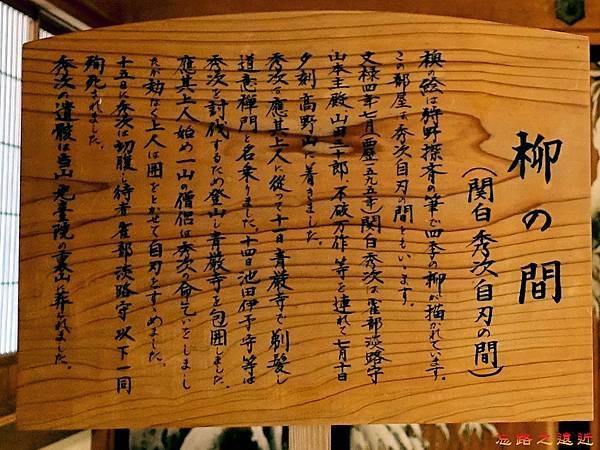 柳の間
(関白秀次自刃の間)
襖の絵は狩野探斉の筆で四季の柳が描かれています。
この部屋は秀次自刃の間ともいゝます。
文禄四年七月(西暦一五九五年)関白秀次は雀部淡路守
山本主殿山田三十郎不破万作等を連れて七月十日
夕刻高野山に着きました。
秀次は應其上人に従って十一日青巌寺で剃髪し
道意禅門と名乗りました。十四日池田伊予守等は
秀次を討伐するため登山し青巌寺を包囲しました。
應其上人始め一山の僧侶は秀次の命乞いをしまし
たが効なく上人は囲をとかせて自刃をすゝめました。
十五日秀次は切腹し侍者雀部淡路守以下一同
殉死されました。
秀次の遺骸は当山光臺院の裏山に葬られました。
忘路之遠近